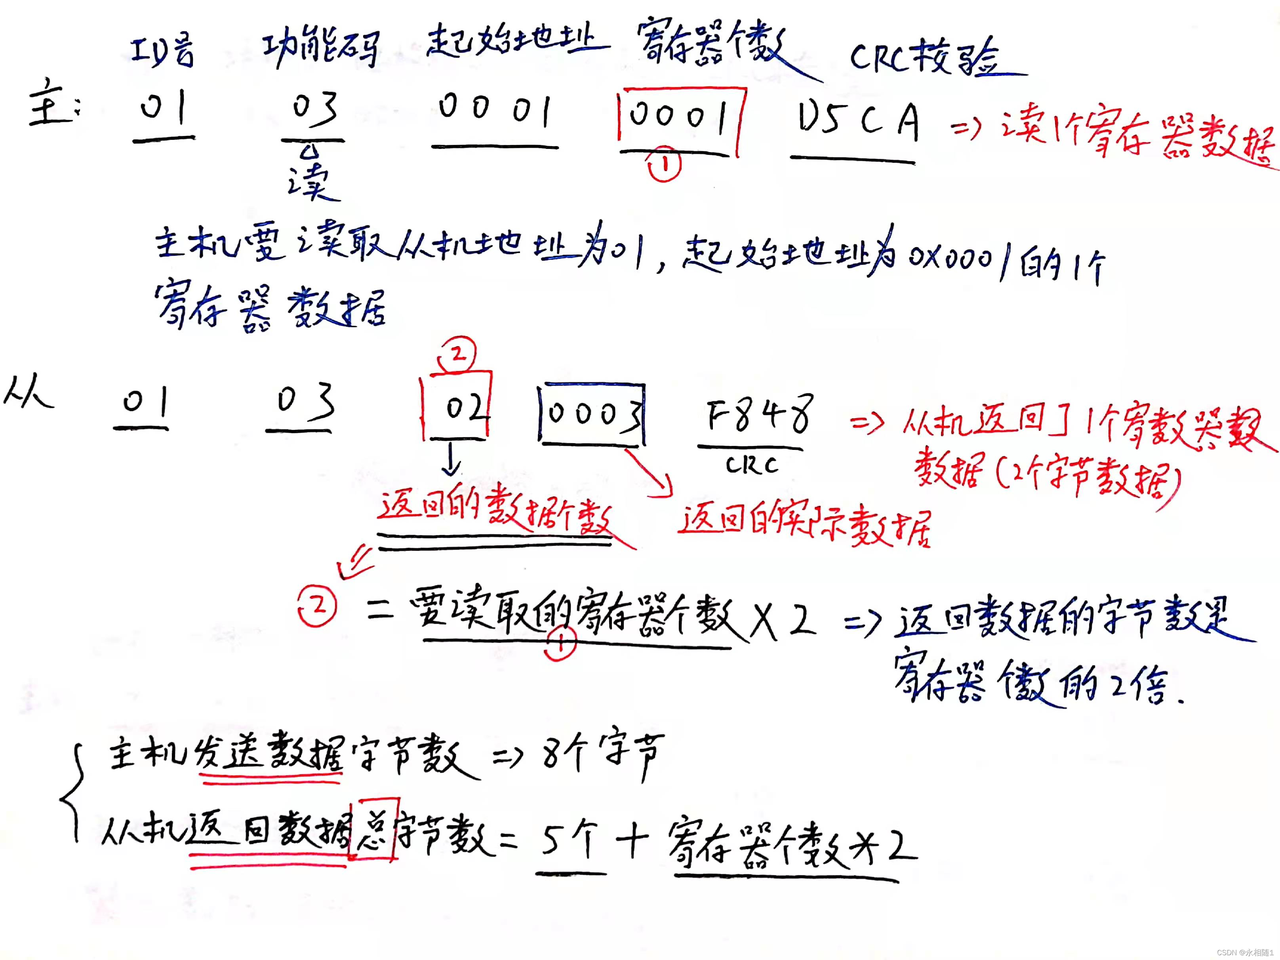 ID号 功能码 起始地址 寄存器个数 CRC校验
主: 01 03 0001 0001 D5CA => 读1个寄存器数据
① 
读
主机要读取从机地址为01,起始地址为0X0001的1个
寄存器数据
②
从 01 03 02 0003 F848 => 从机返回了1个寄数器数
CRC
数据(2个字节数据)
返回的数据个数 返回的实际数据
② = 要读取的寄存器个数 X 2 => 返回数据的字节数是
①
寄存器个数的2倍.
主机发送数据字节数 => 8个字节
从机返回数据总字节数 = 5个 + 寄存器个数*2
CSDN @永相随1